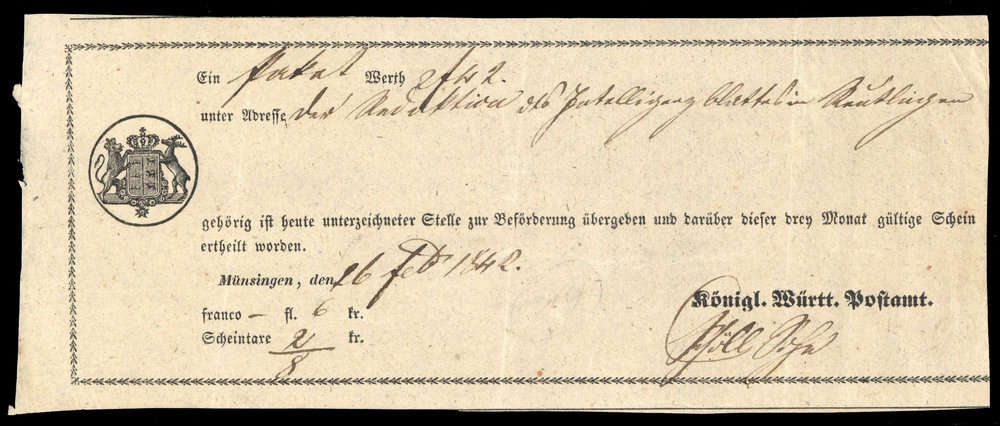 Ein Paket Werth 2 f 42.
unter Adresse, der Redaktion des Intelligenzblattes in Reutlingen
gehörig ist heute unterzeichneter Stelle zur Beförderung übergeben und darüber dieser drey Monat gültige Schein
ertheilt worden.
Münsingen, den 26 Feb 1842.
franco — fl. 6 kr.
Königl. Württ. Postamt.
Scheintaxe 2 kr.
8